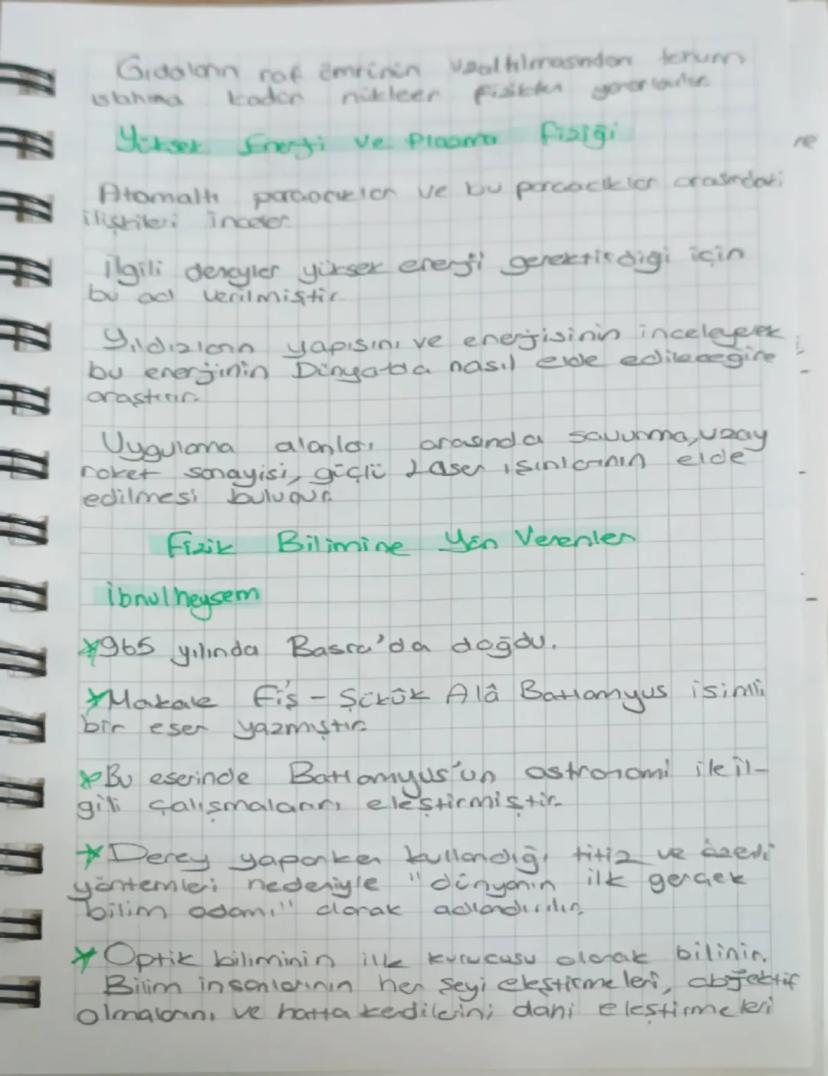 Gıdaların raf ömrinin uzaltılmasından tohum
ıslahına kadar nükleer fizikten yararlanılır.
Yüksek Enerji ve Plazma Fiziği
Atomaltı parçacıkları ve bu parçacıklar arasındaki
ilişkileri inceler.
İlgili deneyler yüksek enerji gerektirdigi için
bu ad verilmiştir.
Yıldızların yapısını ve enerjisinin inceleyerek
bu enerjinin Dünyada nasıl elde edileceğine
araştırır.
Uygulama alanları arasında savunma, uzay
roket sanayisi, güçlü Laser ışınlarının elde
edilmesi bulunur.
Fizik Bilimine Yön Verenler
İbnulheysem
*965 yılında Basra'da doğdu.
*Makale Fi's - Şükük Alâ Batlamyus isimli
bir eser yazmıştır.
*Bu eserinde Batlamyus'un astronomi ile il-
gili çalışmalarını eleştirmiştir.
*Deney yaparken kullandığı titiz ve özenli
yöntemleri nedeniyle "dünyanın ilk gerçek
bilim adamı" olarak adlandırılır.
*Optik biliminin ilk kurucusu olarak bilinir.
Bilim insanlarının her şeyi eleştirmeleri, objektif
olmalarını ve hatta kedilerini dani eleştirmeleri